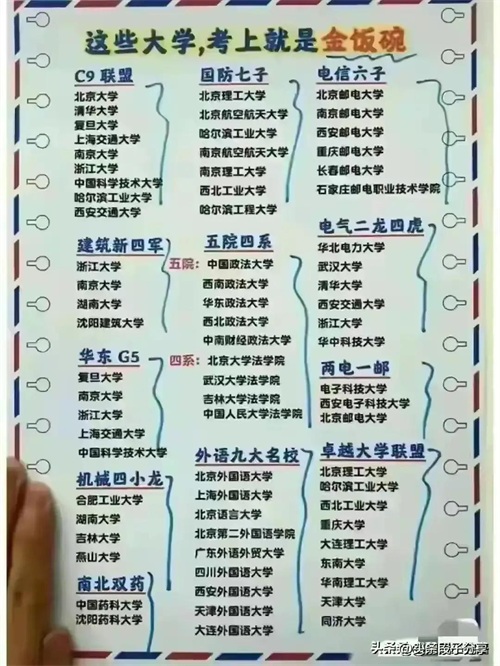 这些大学,考上就是金饭碗
C9 联盟
北京大学
清华大学
复旦大学
上海交通大学
南京大学
浙江大学
中国科学技术大学
哈尔滨工业大学
西安交通大学
国防七子
北京理工大学
北京航空航天大学
哈尔滨工业大学
南京航空航天大学
南京理工大学
西北工业大学
哈尔滨工程大学
电信六子
北京邮电大学
南京邮电大学
西安邮电大学
重庆邮电大学
长春邮电大学
石家庄邮电职业技术学院
建筑新四军
浙江大学
南京大学
湖南大学
沈阳建筑大学
五院四系
五院：中国政法大学
西南政法大学
华东政法大学
西北政法大学
中南财经政法大学
四系：北京大学法学院
武汉大学法学院
吉林大学法学院
中国人民大学法学院
电气二龙四虎
华北电力大学
武汉大学
清华大学
西安交通大学
浙江大学
华中科技大学
华东 G5
复旦大学
南京大学
浙江大学
上海交通大学
中国科学技术大学
两电一邮
电子科技大学
西安电子科技大学
北京邮电大学
机械四小龙
合肥工业大学
湖南大学
吉林大学
燕山大学
外语九大名校
北京外国语大学
上海外国语大学
北京语言大学
北京第二外国语学院
广东外语外贸大学
四川外国语大学
西安外国语大学
天津外国语大学
大连外国语大学
卓越大学联盟
北京理工大学
哈尔滨工业大学
西北工业大学
重庆大学
大连理工大学
东南大学
华南理工大学
天津大学
同济大学
南北双药
中国药科大学
沈阳药科大学
头条